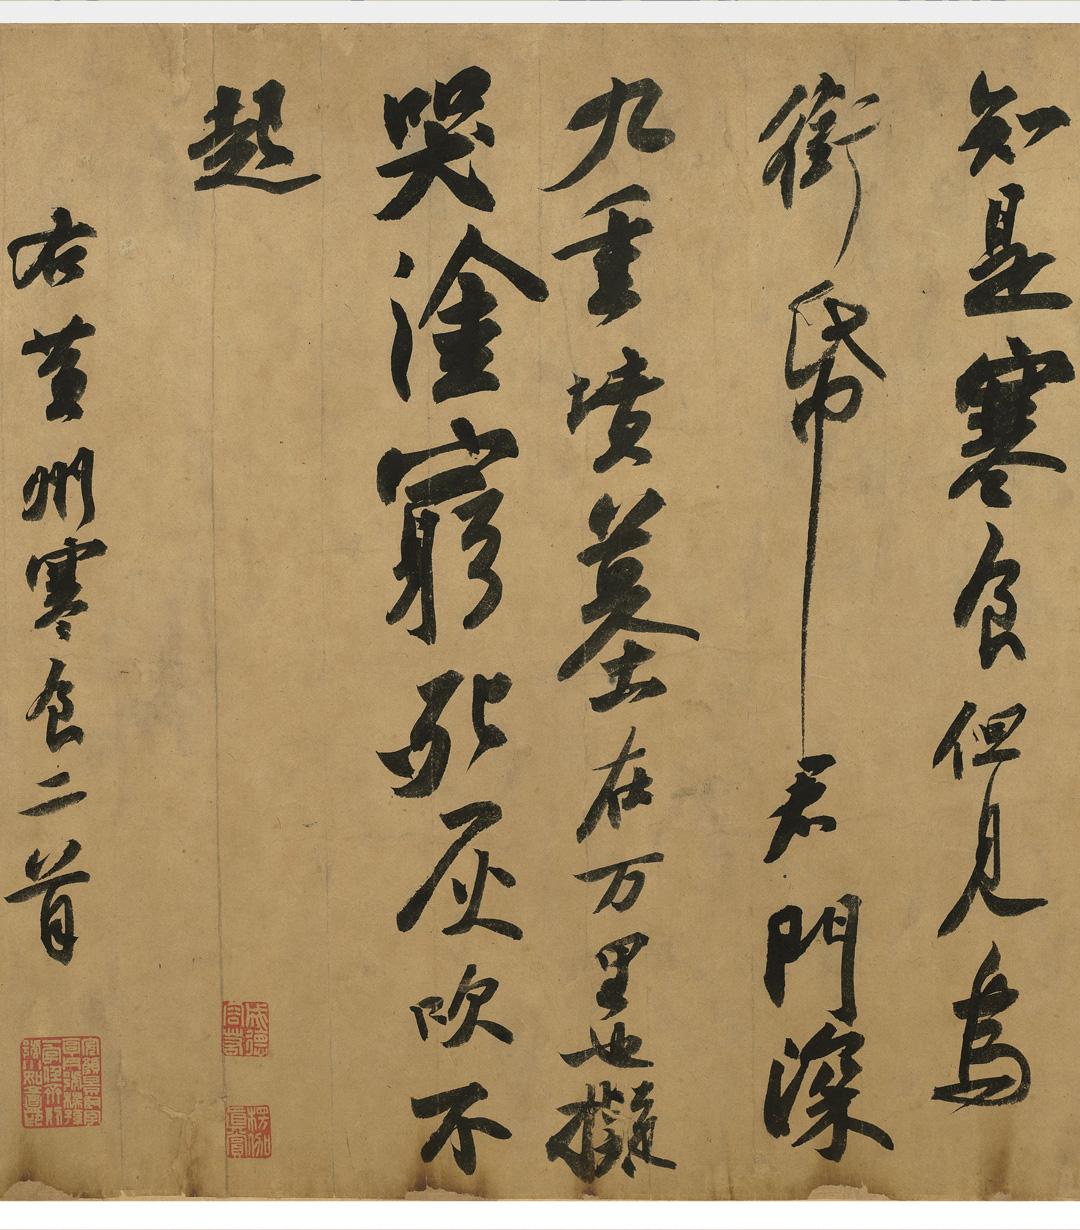 知是寒食但見烏
銜帋君門深
九重墳墓在万里也擬
哭塗窮死灰吹不
起
右黃州寒食二首
成德
容若
楞伽
真賞